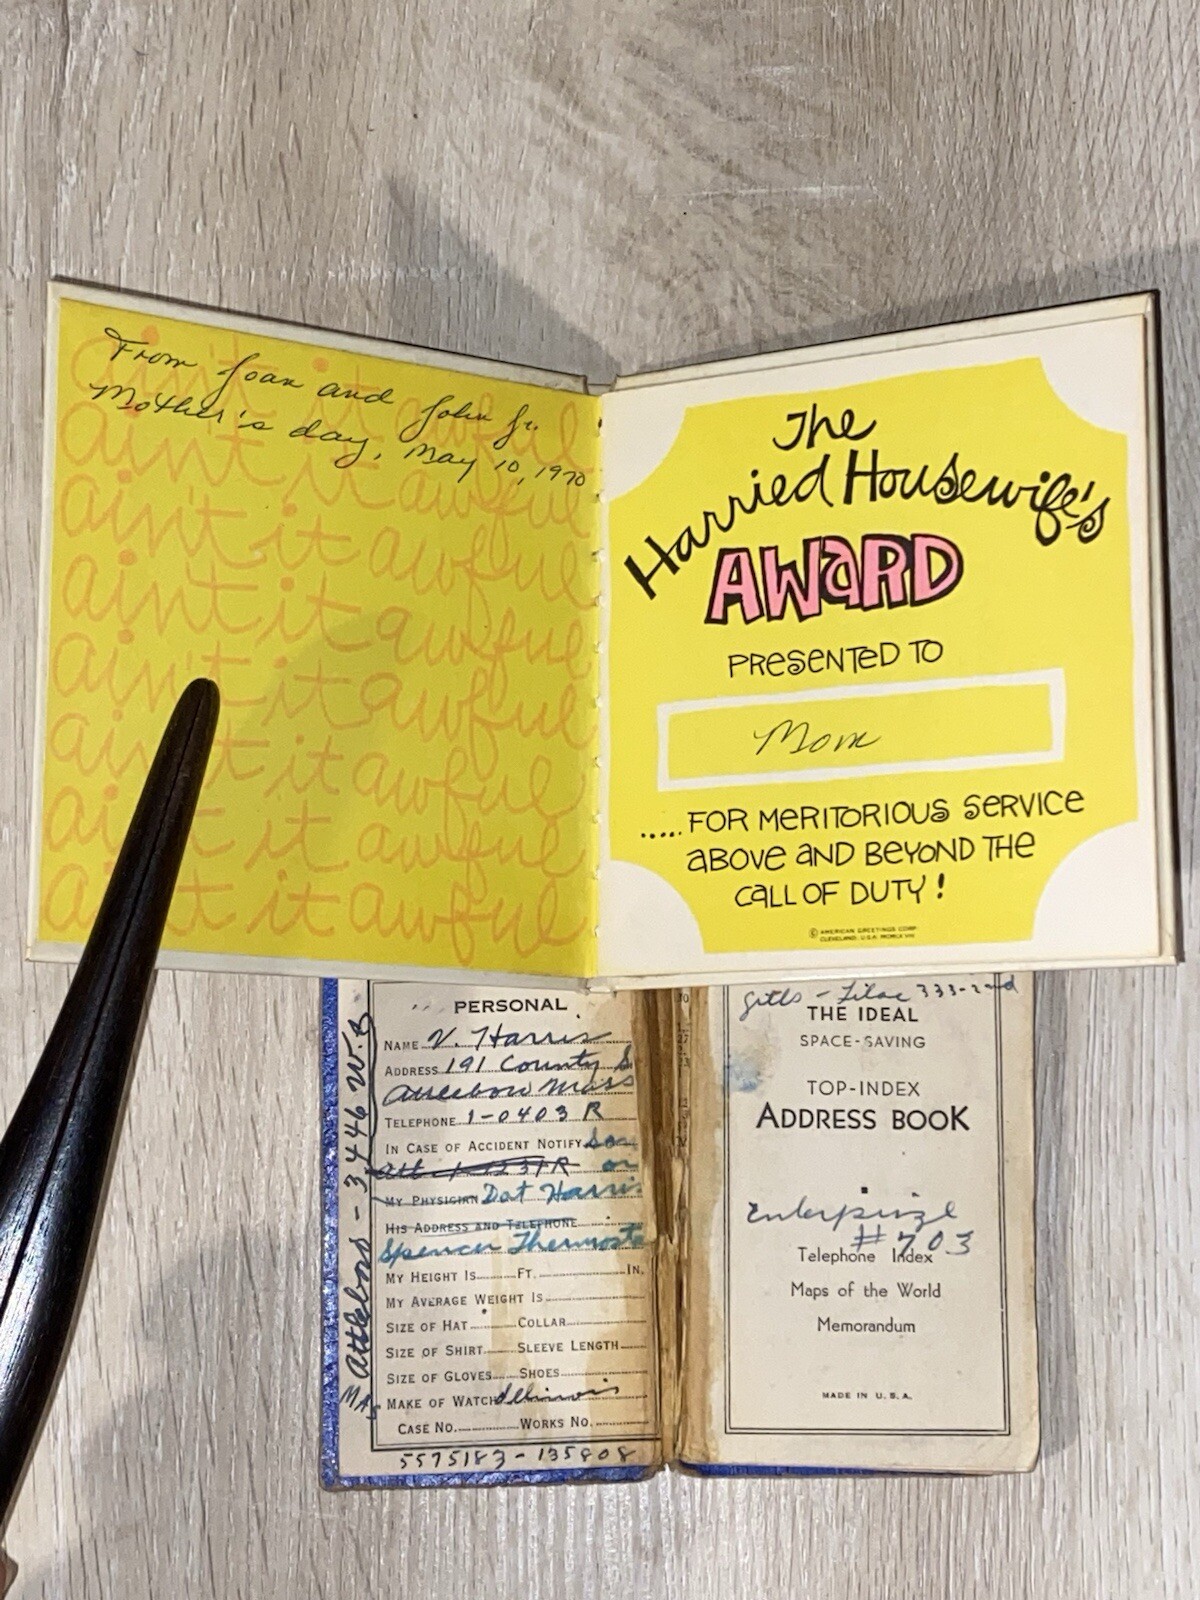 From Joan and John Jr.
Mother's day, May 10, 1970
ain't it awful
ain't it awful
ain't it awful
ain't it awful
ain't it awful
ain't it awful
ain't it awful
ain't it awful
The
Harried Housewife's
AWARD
PRESENTED TO
Mom
.....FOR MERITORIOUS SERVICE
ABOVE AND BEYOND THE
CALL OF DUTY!
© AMERICAN GREETINGS CORP.
CLEVELAND, U.S.A.
PERSONAL
NAME V. Harris
ADDRESS 191 County S
Attleboro Mass
TELEPHONE 1-0403 R
IN CASE OF ACCIDENT NOTIFY
Att. 1-1231R or
MY PHYSICIAN Dot Harris
HIS ADDRESS AND TELEPHONE
Spencer Thermosta
MY HEIGHT IS FT. IN.
MY AVERAGE WEIGHT IS
SIZE OF HAT COLLAR
SIZE OF SHIRT SLEEVE LENGTH
SIZE OF GLOVES SHOES
MAKE OF WATCH Illinois
CASE NO. WORKS NO.
5575183 - 135808
Attleboro - 3446 W.B
- Lilac 333-2nd
THE IDEAL
SPACE-SAVING
TOP-INDEX
ADDRESS BOOK
Enterprize
#703
Telephone Index
Maps of the World
Memorandum
MADE IN U.S.A.